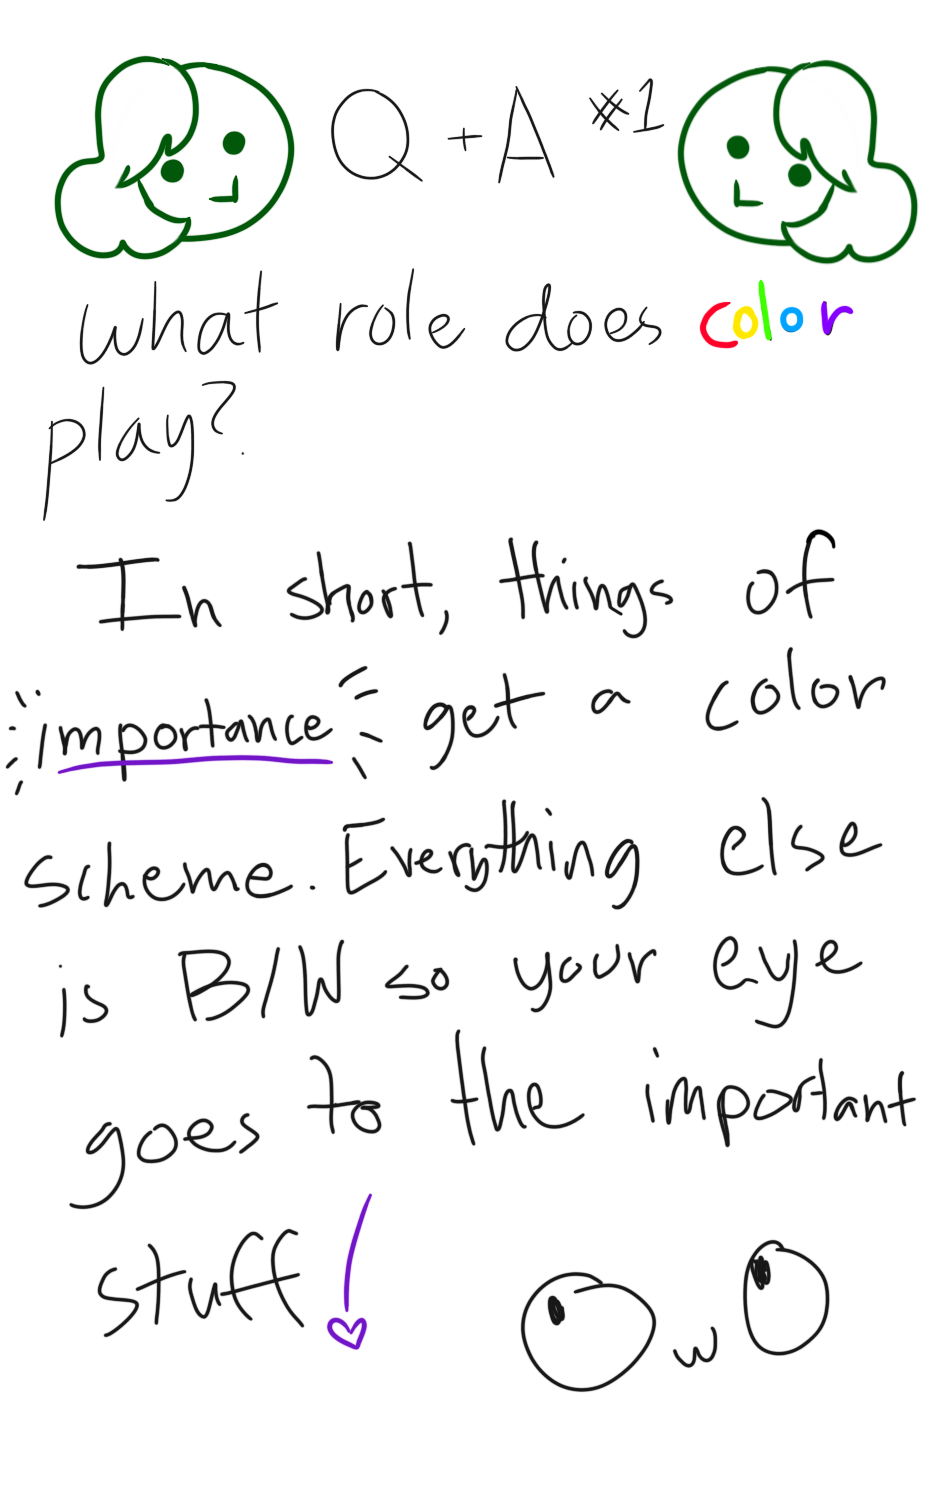 Q + A #1
What role does color
play?
In short, things of
importance get a color
scheme. Everything else
is B/W so your eye
goes to the important
stuff!
OwO